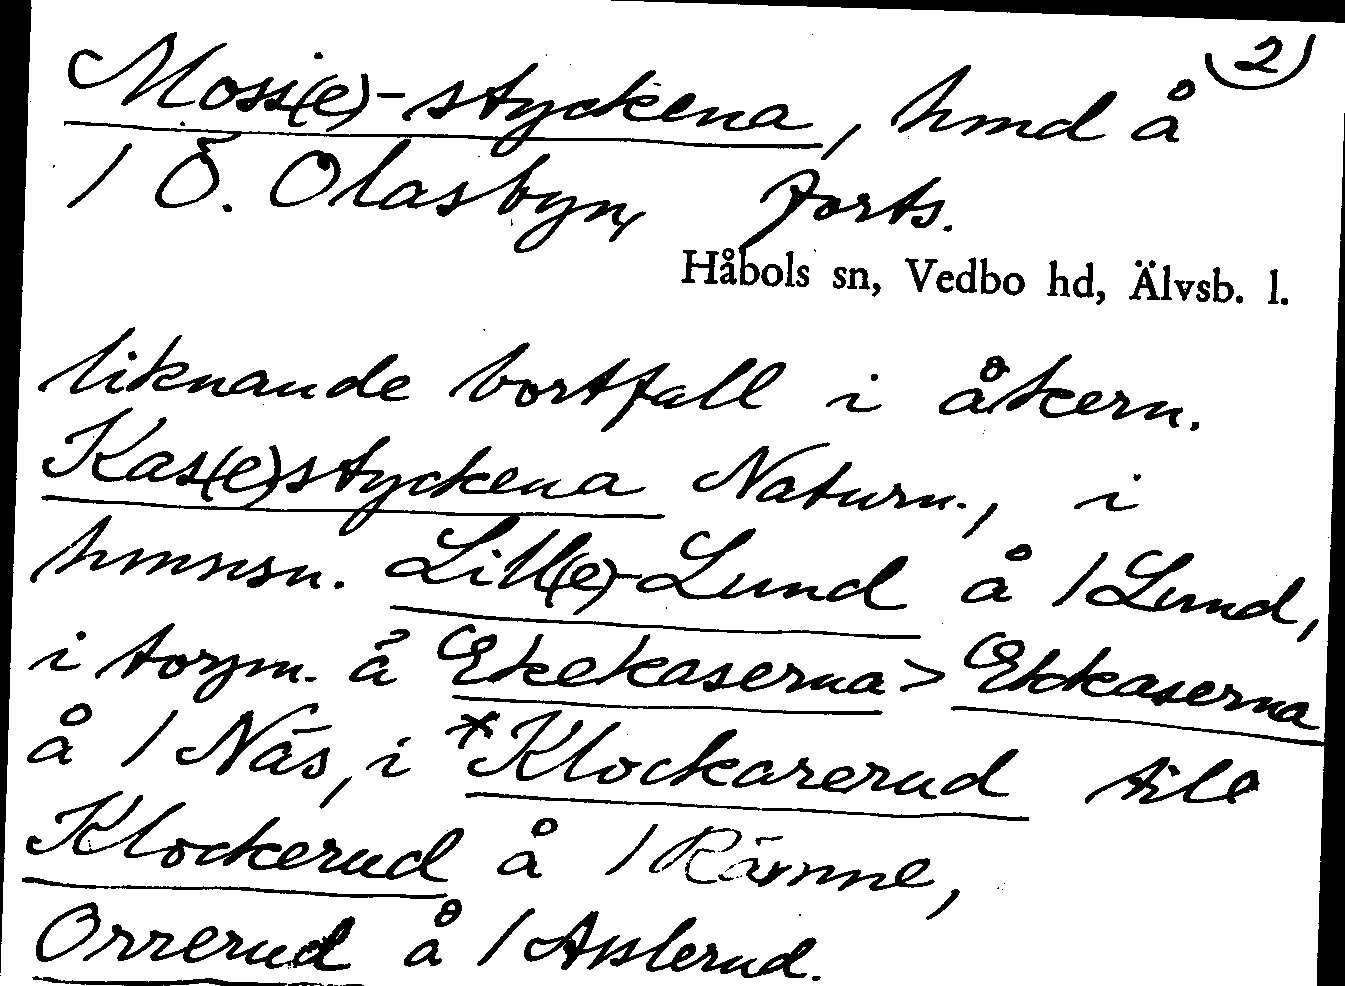 2)
Moss(e)-styckena, hmd å
/ Ö. Olasbyn, Forts.
Håbols sn, Vedbo hd, Älvsb. l.
liknande bortfall i åkern.
Kas(e)styckena Naturn., i
hmnsn. Lill(e)-Lund å / Lund,
i torpn. å Ekekaserna > Ekkaserna
å / Näs, i *Klockarerud till
Klockerud å / Rämne,
Orrerud å / Asslerud.